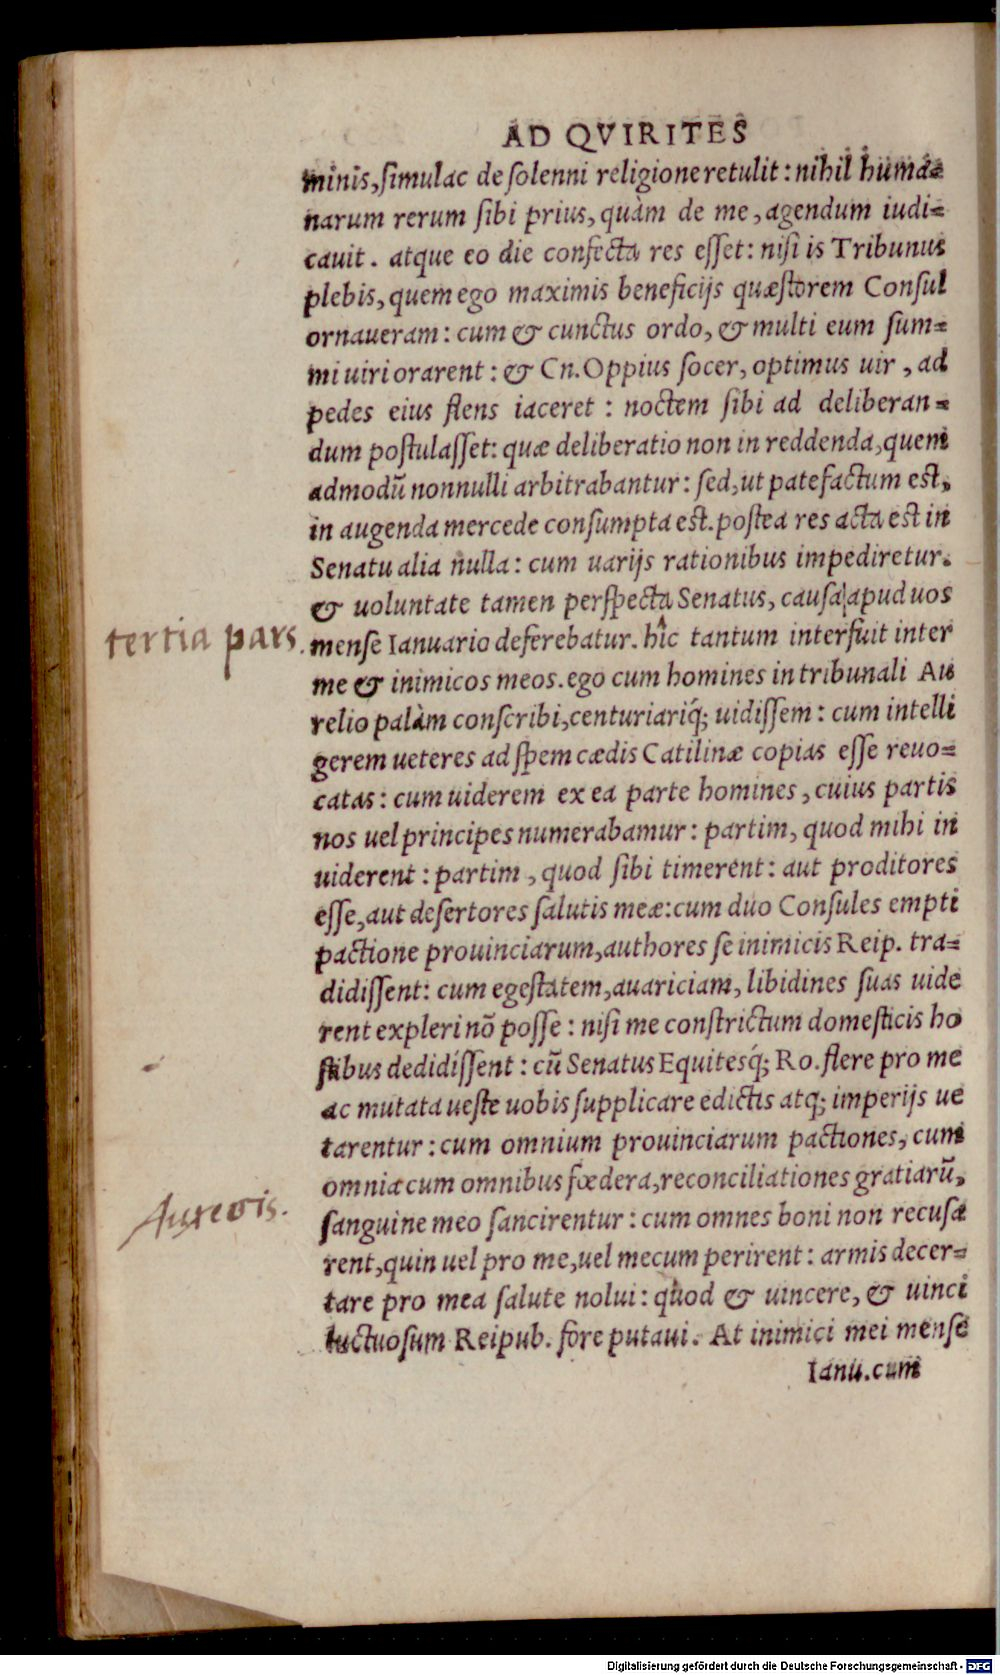 AD QVIRITES
minis,ſimulac de ſolenni religione retulit: nihil huma=
narum rerum ſibi prius, quàm de me, agendum iudi=
cauit. atque eo die confecta res eſſet: niſi is Tribunus
plebis, quem ego maximis beneficijs quæſtorem Conſul
ornaueram: cum & cunctus ordo, & multi eum ſum=
mi uiri orarent: & Cn. Oppius ſocer, optimus uir, ad
pedes eius flens iaceret: noctem ſibi ad deliberan=
dum poſtulaſſet: quæ deliberatio non in reddenda, quem
admodū nonnulli arbitrabantur: ſed, ut patefactum eſt,
in augenda mercede conſumpta eſt. poſtea res acta eſt in
Senatu alia nulla: cum uarijs rationibus impediretur.
& uoluntate tamen perſpecta Senatus, cauſa apud uos
tertia pars.
menſe Ianuario deferebatur. hîc tantum interfuit inter
me & inimicos meos. ego cum homines in tribunali Au
relio palàm conſcribi, centuriariq́; uidiſſem: cum intelli
gerem ueteres ad ſpem cædis Catilinæ copias eſſe reuo=
catas: cum uiderem ex ea parte homines, cuius partis
nos uel principes numerabamur: partim, quod mihi in
uiderent: partim, quod ſibi timerent: aut proditores
eſſe, aut deſertores ſalutis meæ: cum duo Conſules empti
pactione prouinciarum, authores ſe inimicis Reip. tra=
didiſſent: cum egeſtatem, auariciam, libidines ſuas uide
rent expleri nō poſſe: niſi me conſtrictum domeſticis ho
ſtibus dedidiſſent: cū Senatus Equitesq́; Ro. flere pro me
ac mutata ueſte uobis ſupplicare edictis atq; imperijs ue
tarentur: cum omnium prouinciarum pactiones, cum
omnia cum omnibus fœdera, reconciliationes gratiarū,
ſanguine meo ſancirentur: cum omnes boni non recuſa
rent, quin uel pro me, uel mecum perirent: armis decer=
tare pro mea ſalute nolui: quod & uincere, & uinci
luctuoſum Reipub. fore putaui. At inimici mei menſe
Ianu. cum
Digitalisierung gefördert durch die Deutsche Forschungsgemeinschaft - DFG